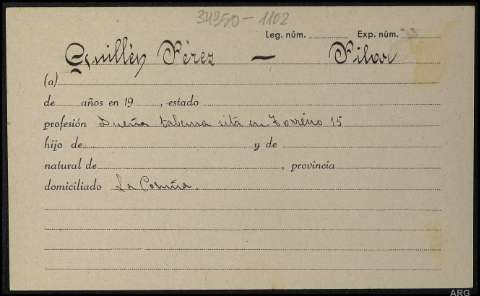 34950-1102
Leg. núm. Exp. núm.
Guillén Pérez — Pilar
(a)
de años en 19 , estado
profesión Dueña taberna sita en Torreiro 15
hijo de y de
natural de , provincia
domiciliado La Coruña.
ARG